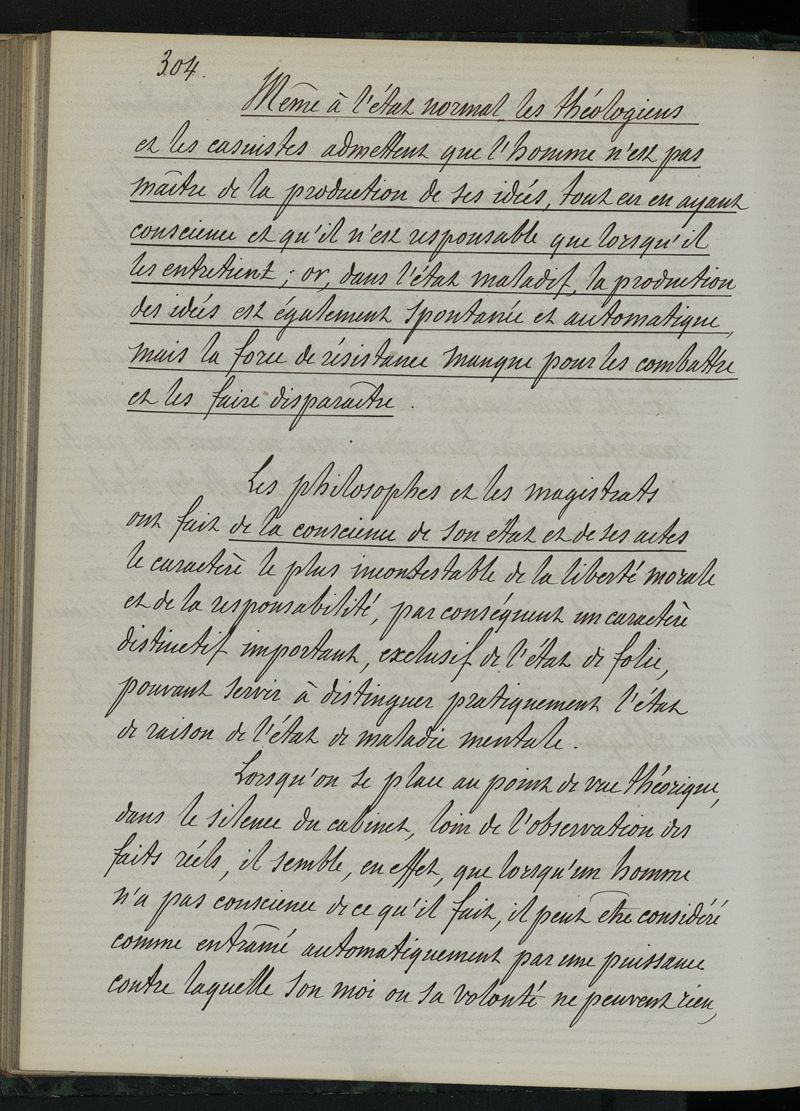 304.
Même à l'état normal les théologiens
et les casuistes admettent que l'homme n'est pas
maître de la production de ses idées, tout en en ayant
conscience et qu'il n'est responsable que lorsqu'il
les entretient ; or, dans l'état maladif, la production
des idées est également spontanée et automatique,
mais la force de résistance manque pour les combattre
et les faire disparaître.
Les philosophes et les magistrats
ont fait de la conscience de son état et de ses actes
le caractère le plus incontestable de la liberté morale
et de la responsabilité, par conséquent un caractère
distinctif important, exclusif de l'état de folie,
pouvant servir à distinguer pratiquement l'état
de raison de l'état de maladie mentale.
Lorsqu'on se place au point de vue théorique,
dans le silence du cabinet, loin de l'observation des
faits réels, il semble, en effet, que lorsqu'un homme
n'a pas conscience de ce qu'il fait, il peut être considéré
comme entraîné automatiquement par une puissance
contre laquelle son moi ou sa volonté ne peuvent rien,